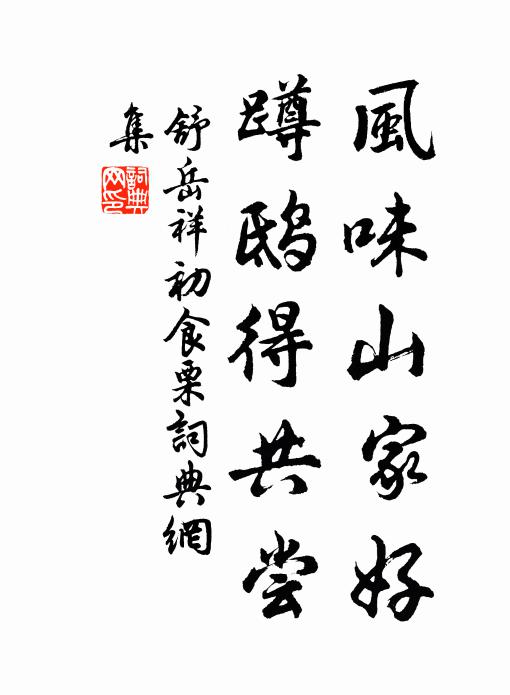 風味山家好
蹲鸱得共尝
舒岳祥初食栗詞典網
集
詞典
网印